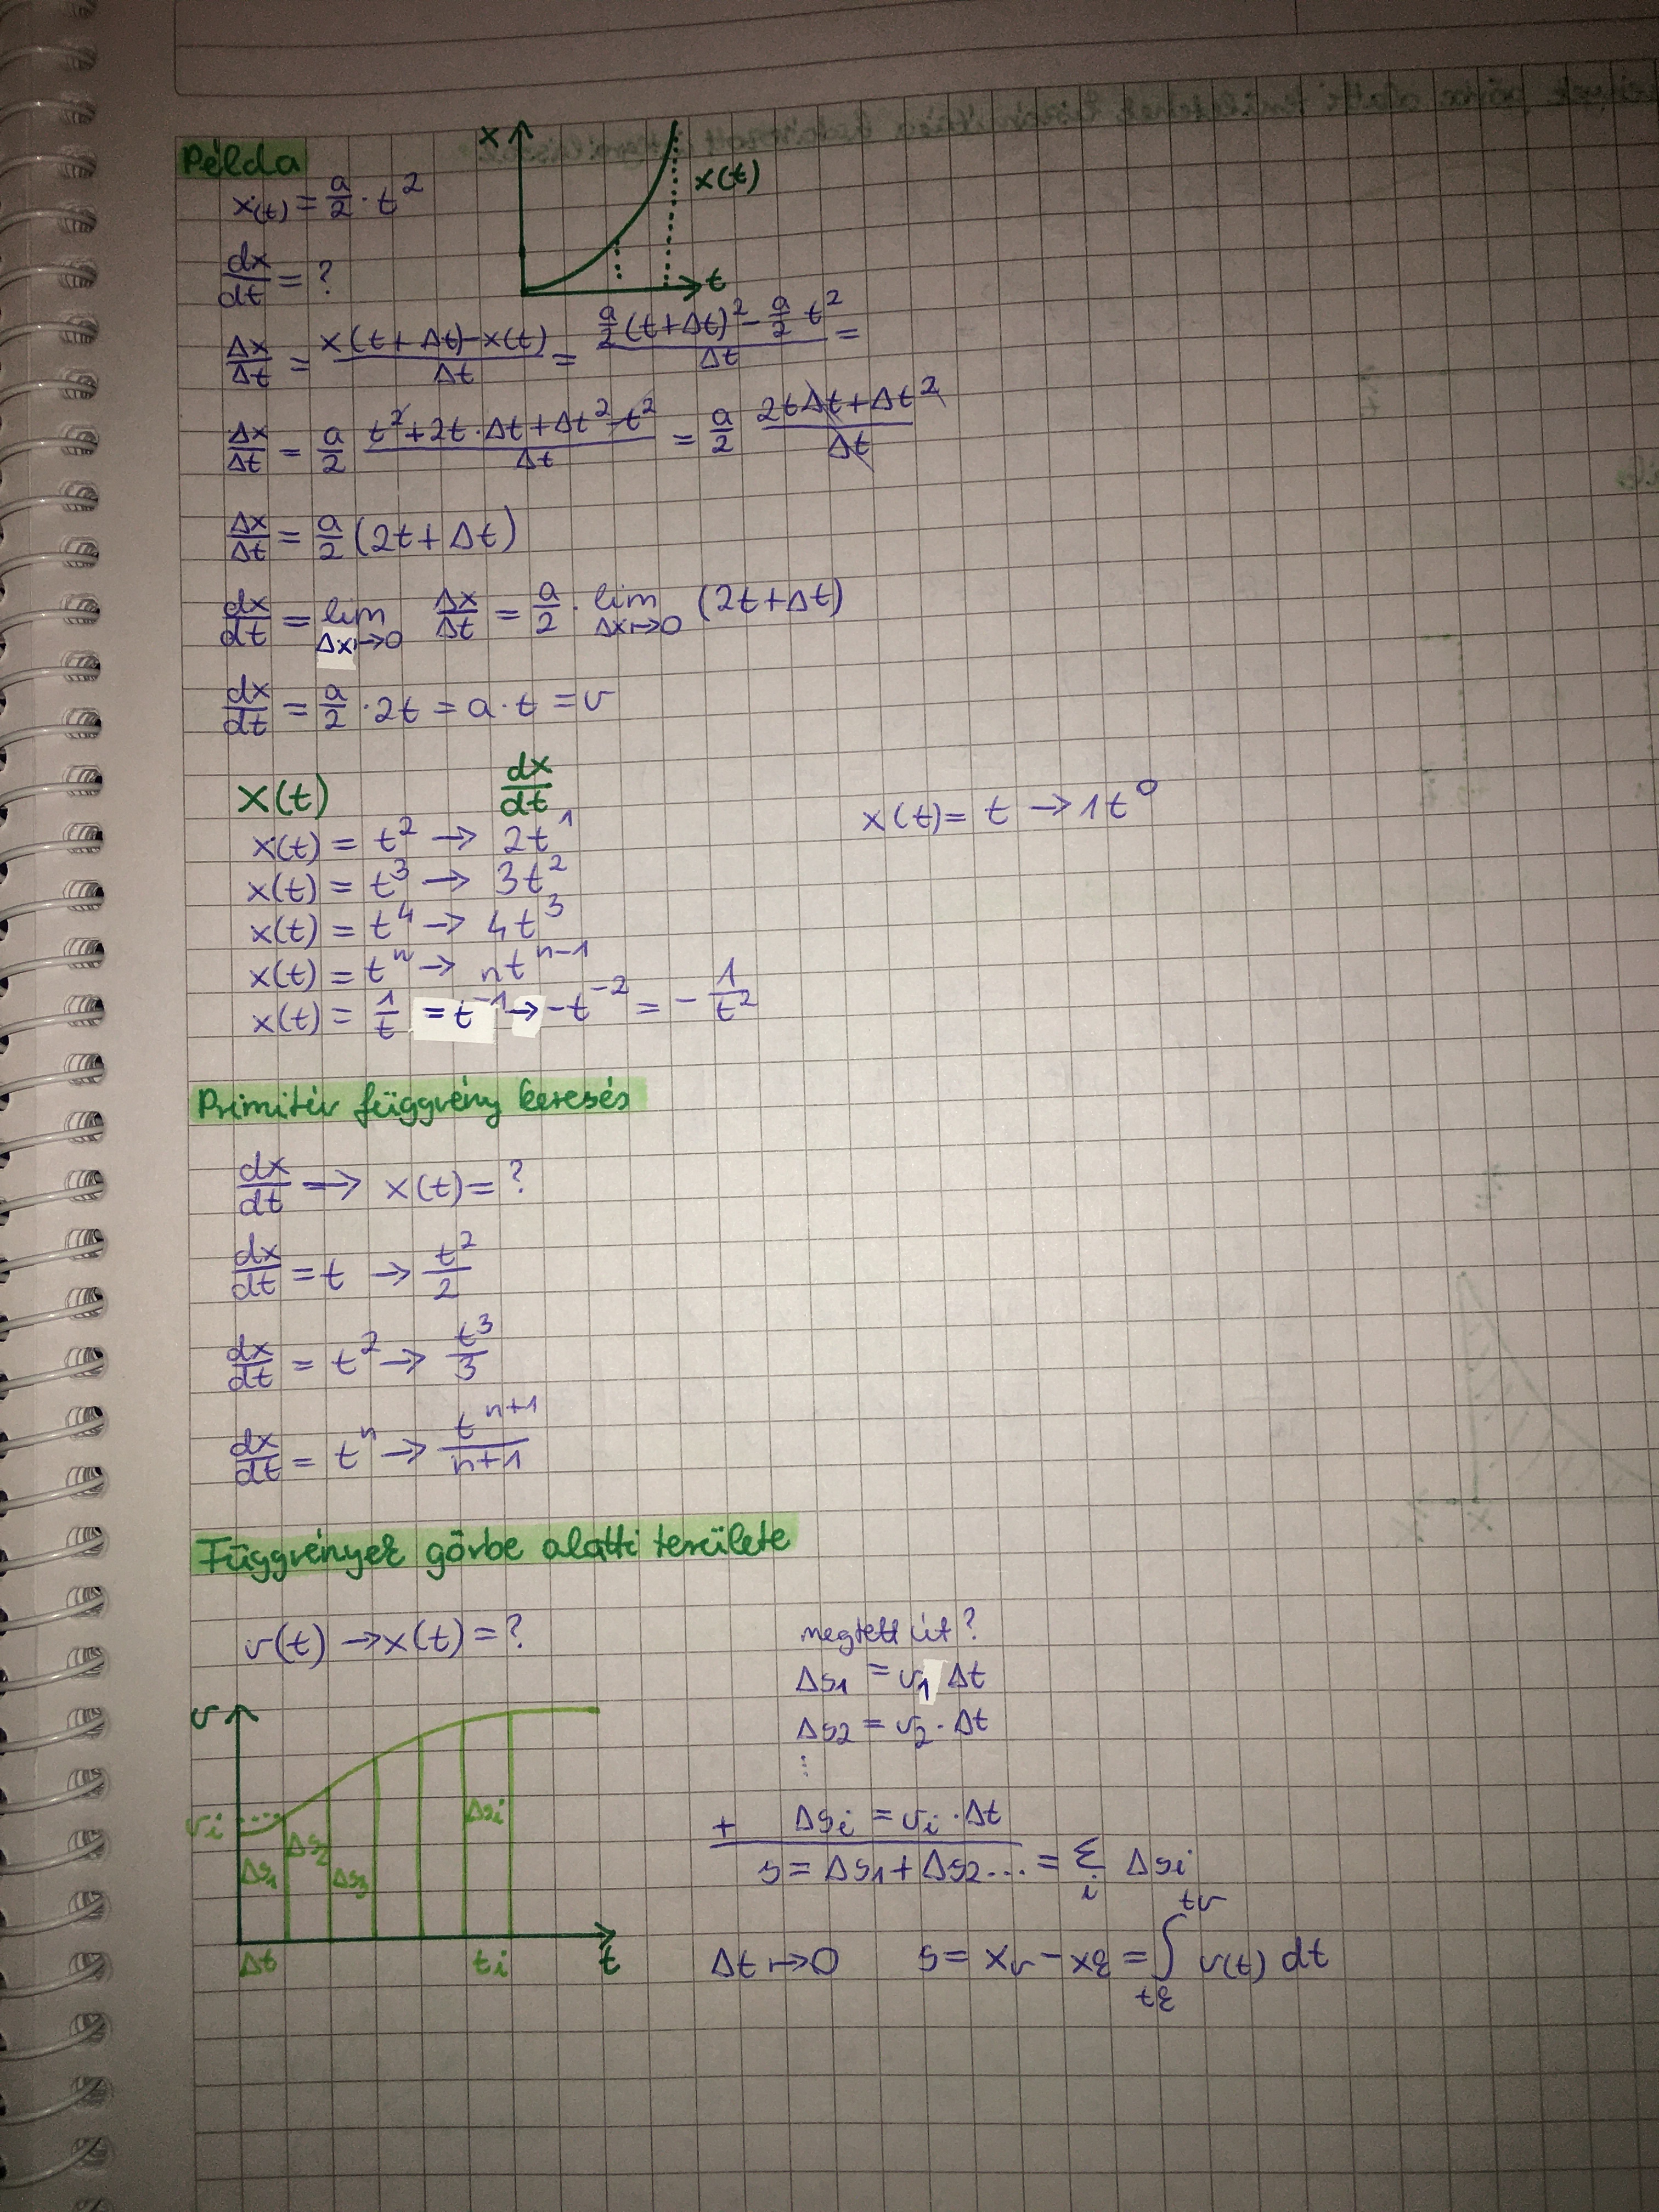 Példa
x(t) = a/2 · t²
x
x(t)
t
dx/dt = ?
Δx/Δt = (x(t+Δt)-x(t))/Δt = (a/2(t+Δt)² - a/2 t²)/Δt =
Δx/Δt = a/2 (t²+2t·Δt+Δt²-t²)/Δt = a/2 (2tΔt+Δt²)/Δt
Δx/Δt = a/2 (2t+Δt)
dx/dt = lim Δx↦0 Δx/Δt = a/2 · lim Δx↦0 (2t+Δt)
dx/dt = a/2 · 2t = a·t = v
x(t) dx/dt
x(t) = t² → 2t¹
x(t) = t → 1t⁰
x(t) = t³ → 3t²
x(t) = t⁴ → 4t³
x(t) = tⁿ → ntⁿ⁻¹
x(t) = 1/t = t⁻¹ → -t⁻² = - 1/t²
Primitív függvény keresés
dx/dt → x(t) = ?
dx/dt = t → t²/2
dx/dt = t² → t³/3
dx/dt = tⁿ → tⁿ⁺¹/n+1
Függvények görbe alatti területe
v(t) → x(t) = ?
v
vi
Δs1 Δs2 Δs3 Δsi
Δt ti t
megtett út?
Δs1 = v1 Δt
Δs2 = v2 · Δt
⋮
+ Δsi = vi · Δt
s = Δs1 + Δs2... = Σi Δsi
Δt ↦ 0 s = xv - xk = ∫tk^tv v(t) dt